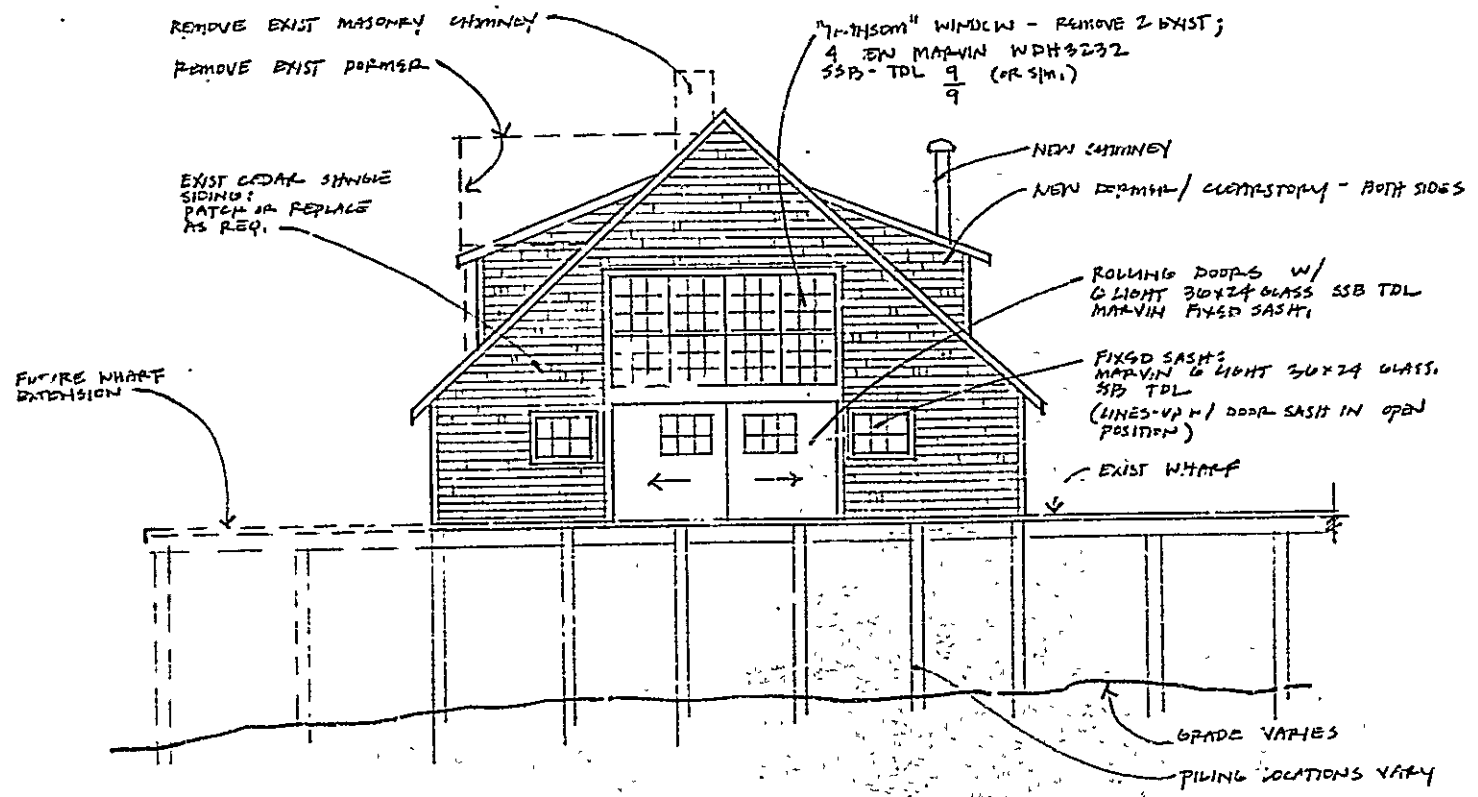 REMOVE EXIST MASONRY CHIMNEY
REMOVE EXIST DORMER
EXIST CEDAR SHINGLE
SIDING:
PATCH OR REPLACE
AS REQ.
FUTURE WHARF
EXTENSION
WINDOW - REMOVE 2 EXIST;
4 MARVIN WDH3232
SSB-TDL 9/9 (OR SIM.)
NEW CHIMNEY
NEW DORMER/CLEARSTORY - BOTH SIDES
ROLLING DOORS W/
6 LIGHT 36x24 GLASS SSB TDL
MARVIN FIXED SASH.
FIXED SASH:
MARVIN 6 LIGHT 36x24 GLASS.
SB TDL
(LINES-UP W/ DOOR SASH IN OPEN
POSITION)
EXIST WHARF
GRADE VARIES
PILING LOCATIONS VARY